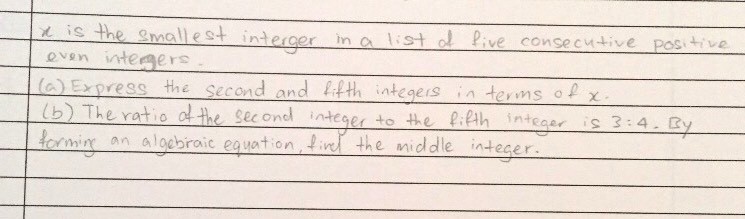 x is the smallest interger in a list of five consecutive positive
even intergers.
(a) Express the second and fifth integers in terms of x.
(b) The ratio of the second integer to the fifth integer is 3:4. By
forming an algebraic equation, find the middle integer.